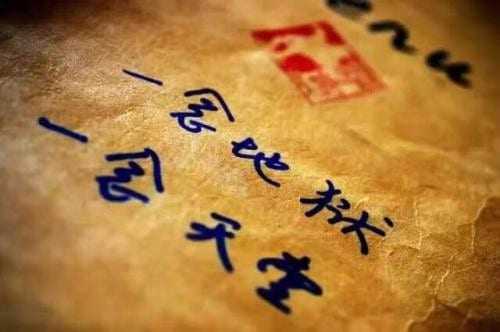 一念地狱
一念天堂